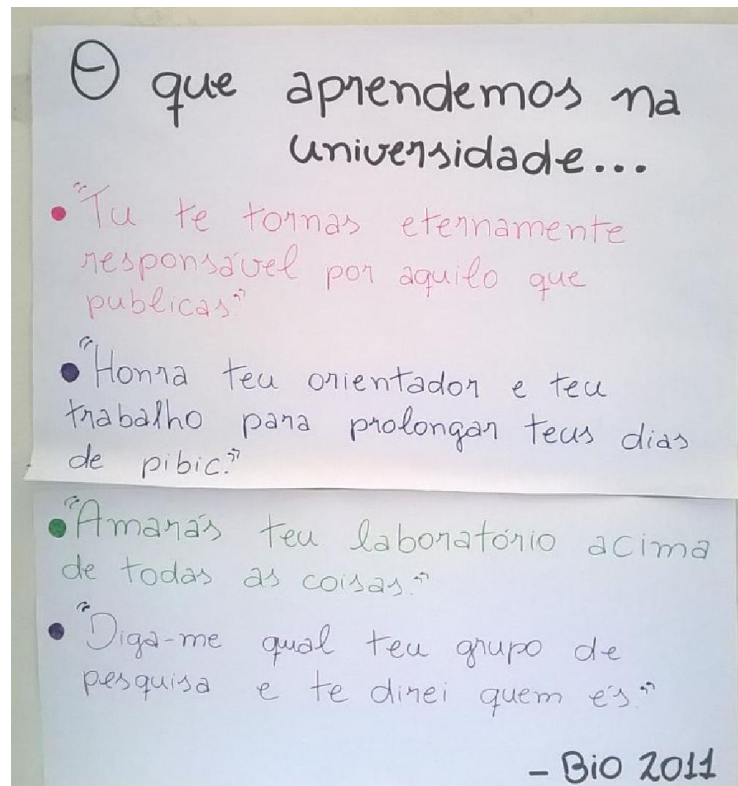 O que aprendemos na
universidade...
• "Tu te tornas eternamente
responsável por aquilo que
publicas"
• "Honra teu orientador e teu
trabalho para prolongar teus dias
de pibic."
• "Amarás teu laboratório acima
de todas as coisas."
• "Diga-me qual teu grupo de
pesquisa e te direi quem és."
- BiO 2011